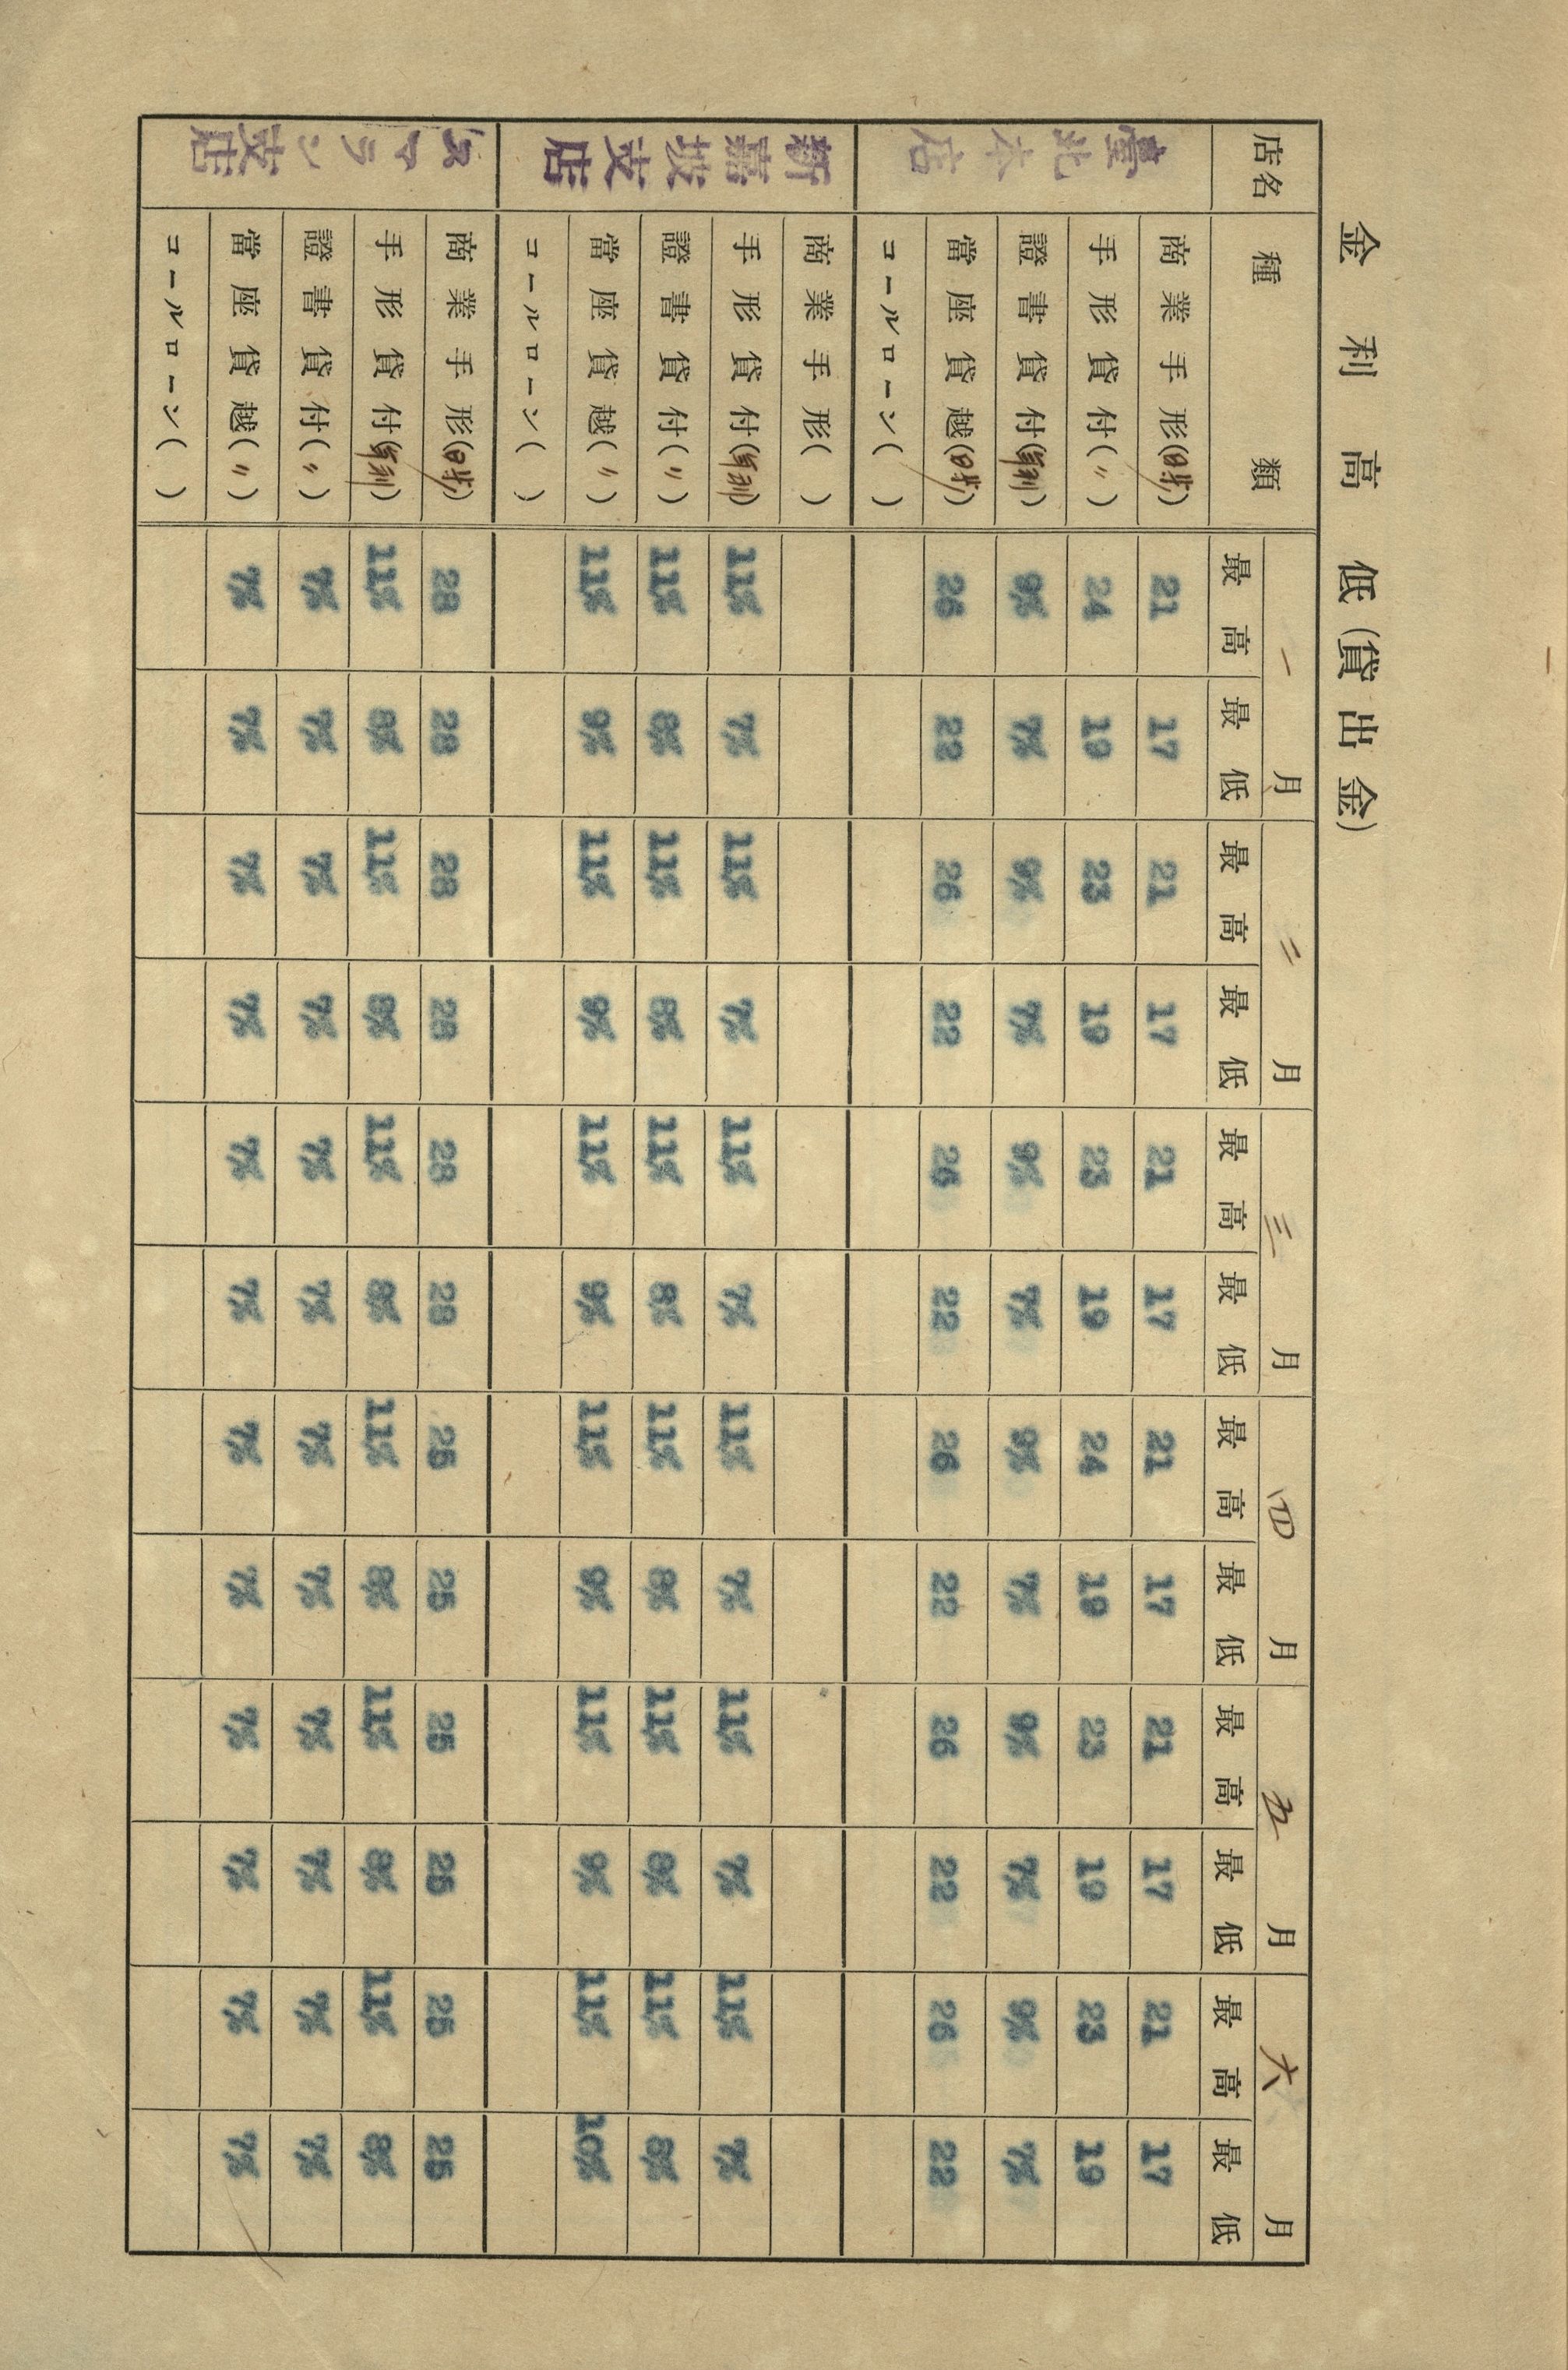 金利高低(貸出金)
店名 種類 一月 二月 三月 四月 五月 六月
最高 最低 最高 最低 最高 最低 最高 最低 最高 最低 最高 最低
臺北本店
商業手形(日歩) 21 17 21 17 21 17 21 17 21 17 21 17
手形貸付(〃) 24 19 23 19 23 19 24 19 23 19 23 19
證書貸付(年利) 9% 7% 9% 7% 9% 7% 9% 7% 9% 7% 9% 7%
當座貸越(日歩) 26 22 26 22 26 22 26 22 26 22 26 22
コールローン( )
新嘉坡支店
商業手形( )
手形貸付(年利) 11% 7% 11% 7% 11% 7% 11% 7% 11% 7% 11% 7%
證書貸付(〃) 11% 8% 11% 8% 11% 8% 11% 8% 11% 8% 11% 8%
當座貸越(〃) 11% 9% 11% 9% 11% 9% 11% 9% 11% 9% 11% 10%
コールローン( )
スマラン支店
商業手形(日歩) 28 28 28 28 28 28 25 25 25 25 25 25
手形貸付(年利) 11% 8% 11% 8% 11% 8% 11% 8% 11% 8% 11% 8%
證書貸付(〃) 7% 7% 7% 7% 7% 7% 7% 7% 7% 7% 7% 7%
當座貸越(〃) 7% 7% 7% 7% 7% 7% 7% 7% 7% 7% 7% 7%
コールローン( )